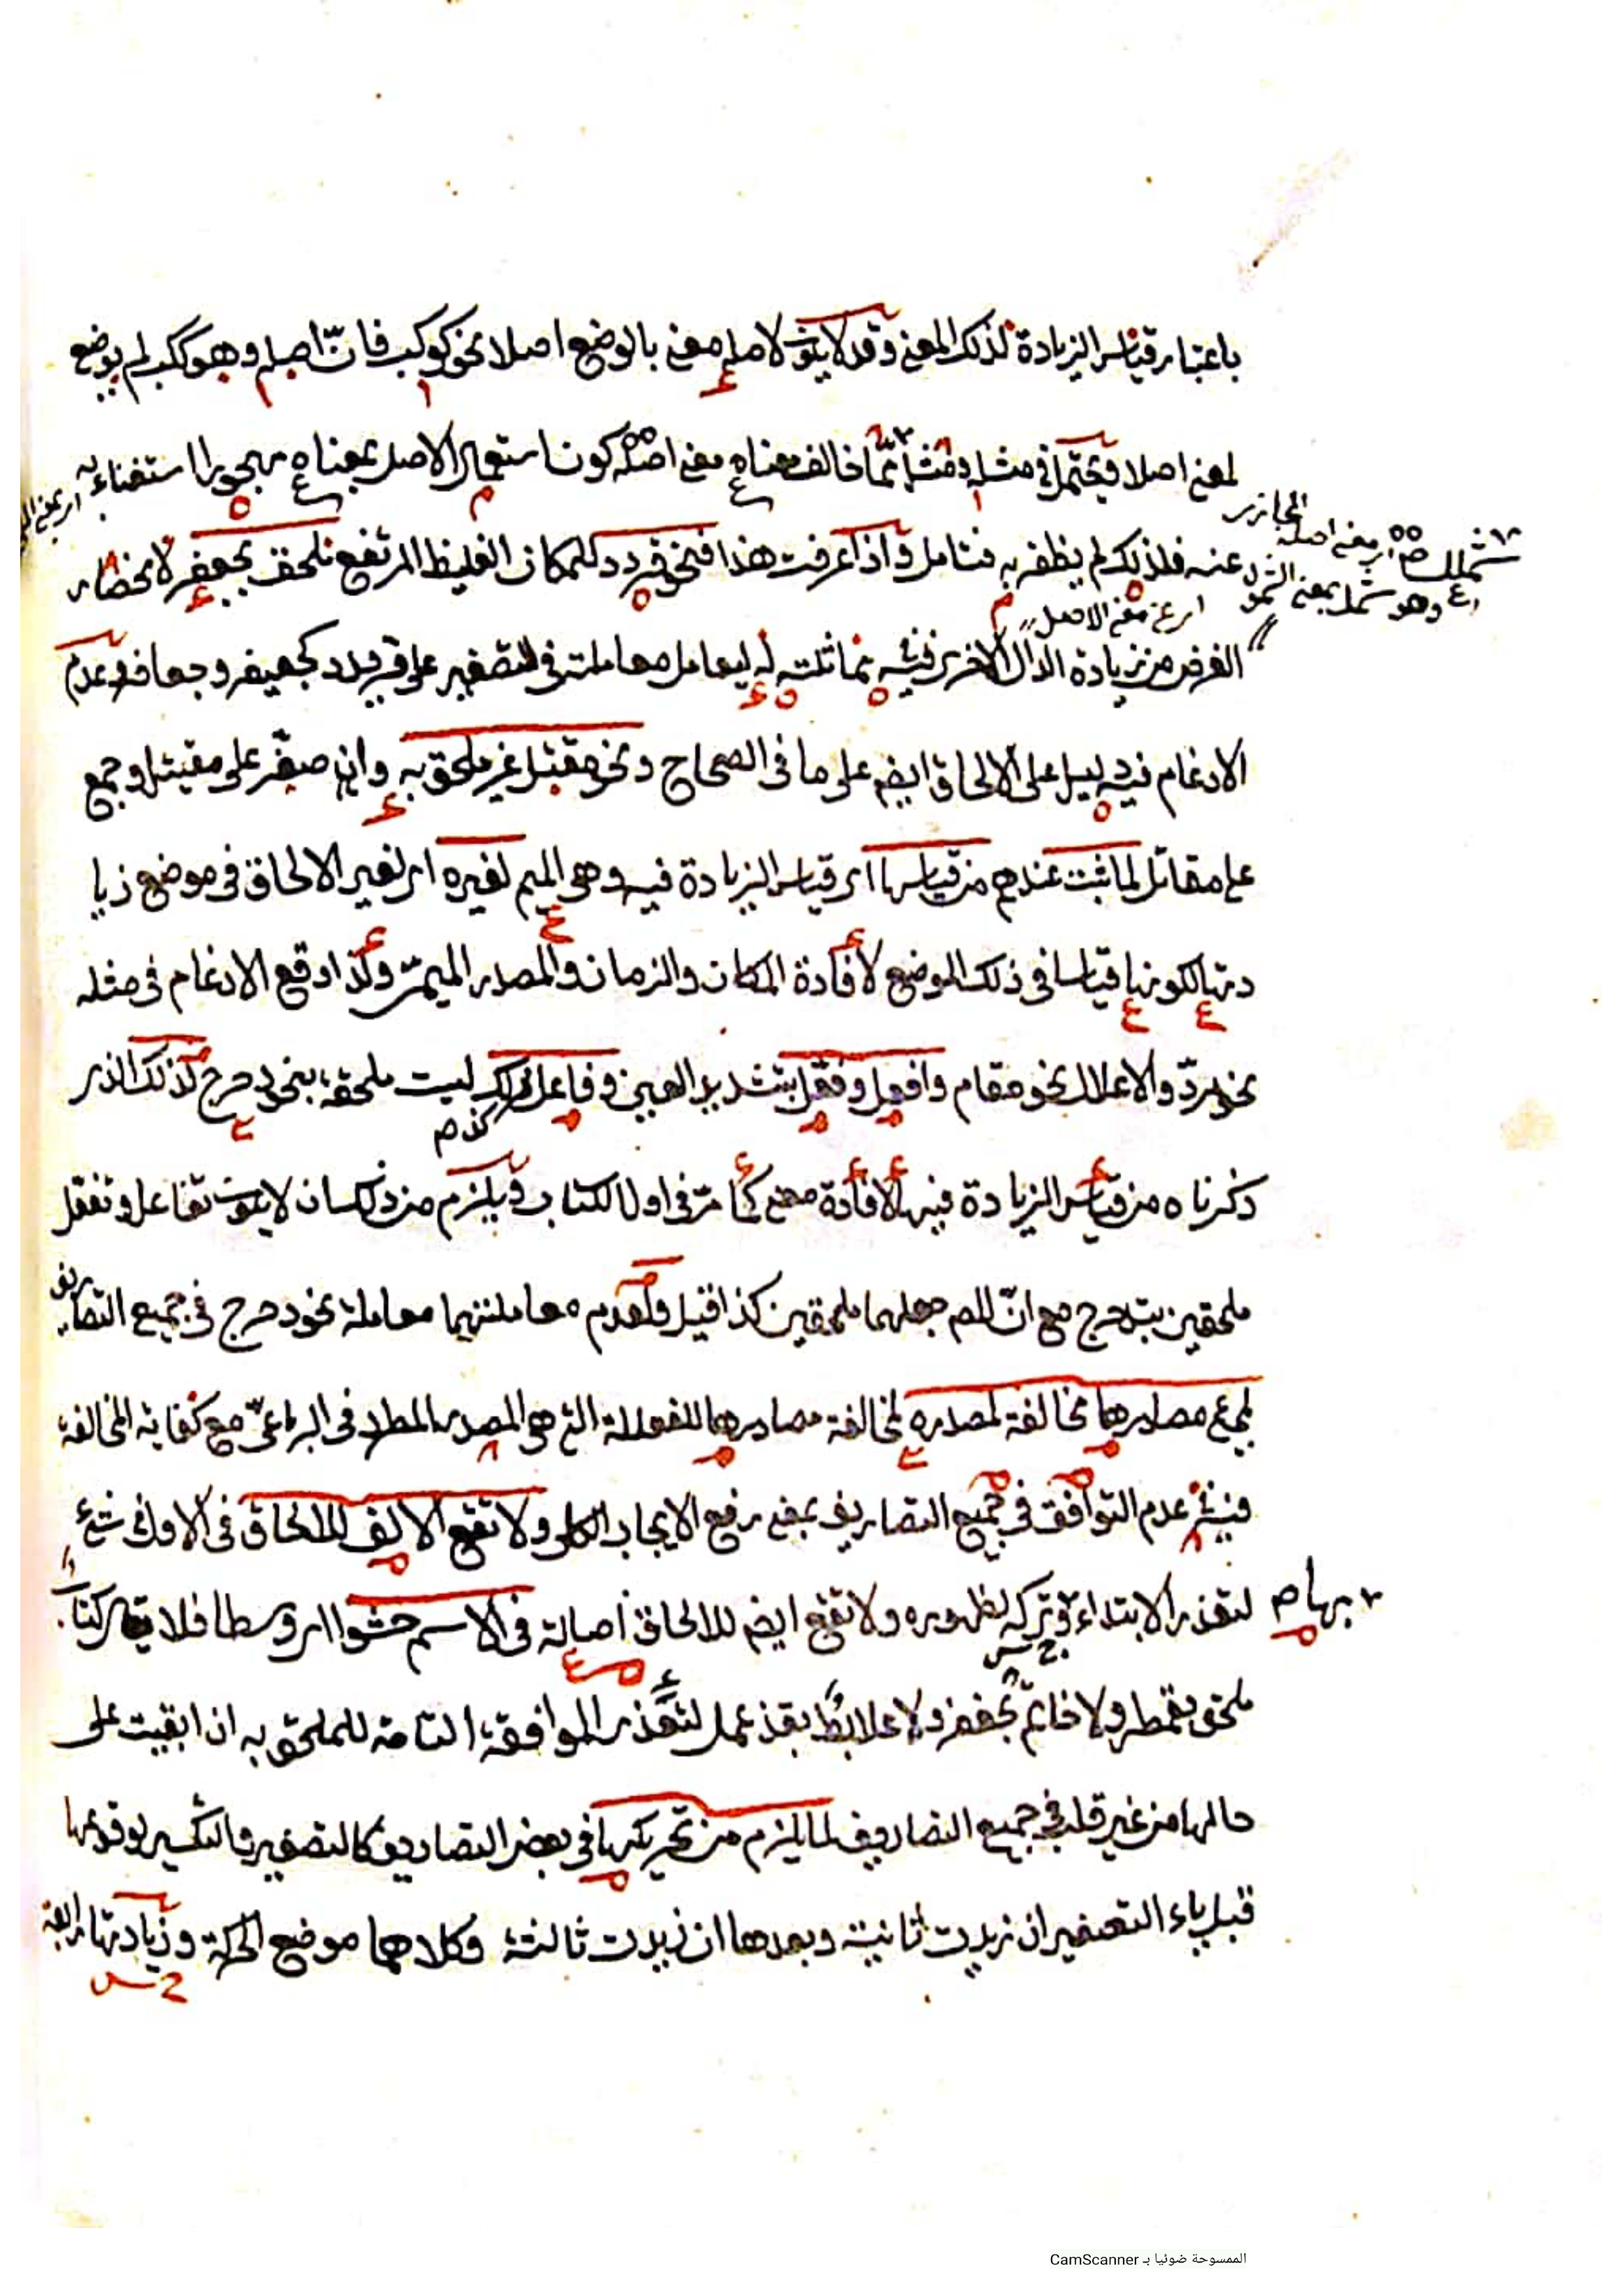 باعتبار قياس الزيادة لذلك المعنى وقد لا يكون لاصله معنى بالوضع اصلا نحو كوكب فانّ اصله وهو ككب لم يوضع
لمعنى اصلا فيحتمل في مثله ومثل ممّا خالف معناه معنى اصله كون استعمال الاصل بمعناه مهجورا استغناء به
عنه فلذلك لم يظفر به فتامل واذا عرفت هذا فنحو قردد للمكان الغليظ المرتفع ملحق بجعفر لانحصار
الغرض من زيادة الدال الاخرى فيه بمماثلته له ليعامل معاملته في التصغير على قريدد كجعيفر وجعافر وعدم
الادغام فيه دليل على الالحاق ايضم على ما في الصحاح ونحو مقتل غير ملحق به وان صغّر على مقيتل وجمع
على مقاتل لما ثبت عندهم من قياسها اى قياس الزيادة فيه وهى الميم لغيره اى لغير الالحاق في موضع زيا
دتها لكونها قياسا في ذلك الموضع لافادة المكان والزمان والمصدر الميمىّ وكذا وقع الادغام في مثله
نحو مردّ والاعلال نحو مقام وافعل وفعّل بتشديد العين وفاعل كذلك ليست ملحقة بنحو دحرج لذلك الذى
ذكرناه من قياس الزيادة فيها لافادة معنى كما مرّ في اول الكتاب ويلزم من ذلك ان لا يكون تفاعل وتفعّل
ملحقين بتدحرج مع انّ المص جعلهما ملحقين كذا قيل ولعدم معاملتهما معاملة نحو دحرج في جميع التصاريف
لمجئ مصادرها مخالفة لمصدره لمخالفة مصادرها للفعللة التى هى المصدر المطرد في الرباعىّ مع كفاية المخالفة
في شئ عدم التوافق في جميع التصاريف بمعنى رفع الايجاب الكلى ولا تقع الالف للالحاق في الاول في شئ
لتعذر الابتداء بها وتركه لظهوره ولا تقع ايضم للالحاق اصالة في الاسم حشوا اى وسطا فلا يقال كتاب
ملحق بقمطر ولا خاتم بجعفر ولا علابط بقذعمل لتعذر الموافقة التامة للملحق به ان ابقيت على
حالها من غير قلب في جميع التصاريف لما يلزم من تحريكها في بعض التصاريف كالتصغير والتكسير لوقوعها
قبل ياء التصغير ان زيدت ثانية وبعدها ان زيدت ثالثة وكلاهما موضع الحركة وزيادتها رابعة
شملل
اى معنى اصله
المجازى
وهو شمل بمعنى الشمو
اى عن معنى الاصل
كذم
بها ص
الممسوحة ضوئيا بـ CamScanner